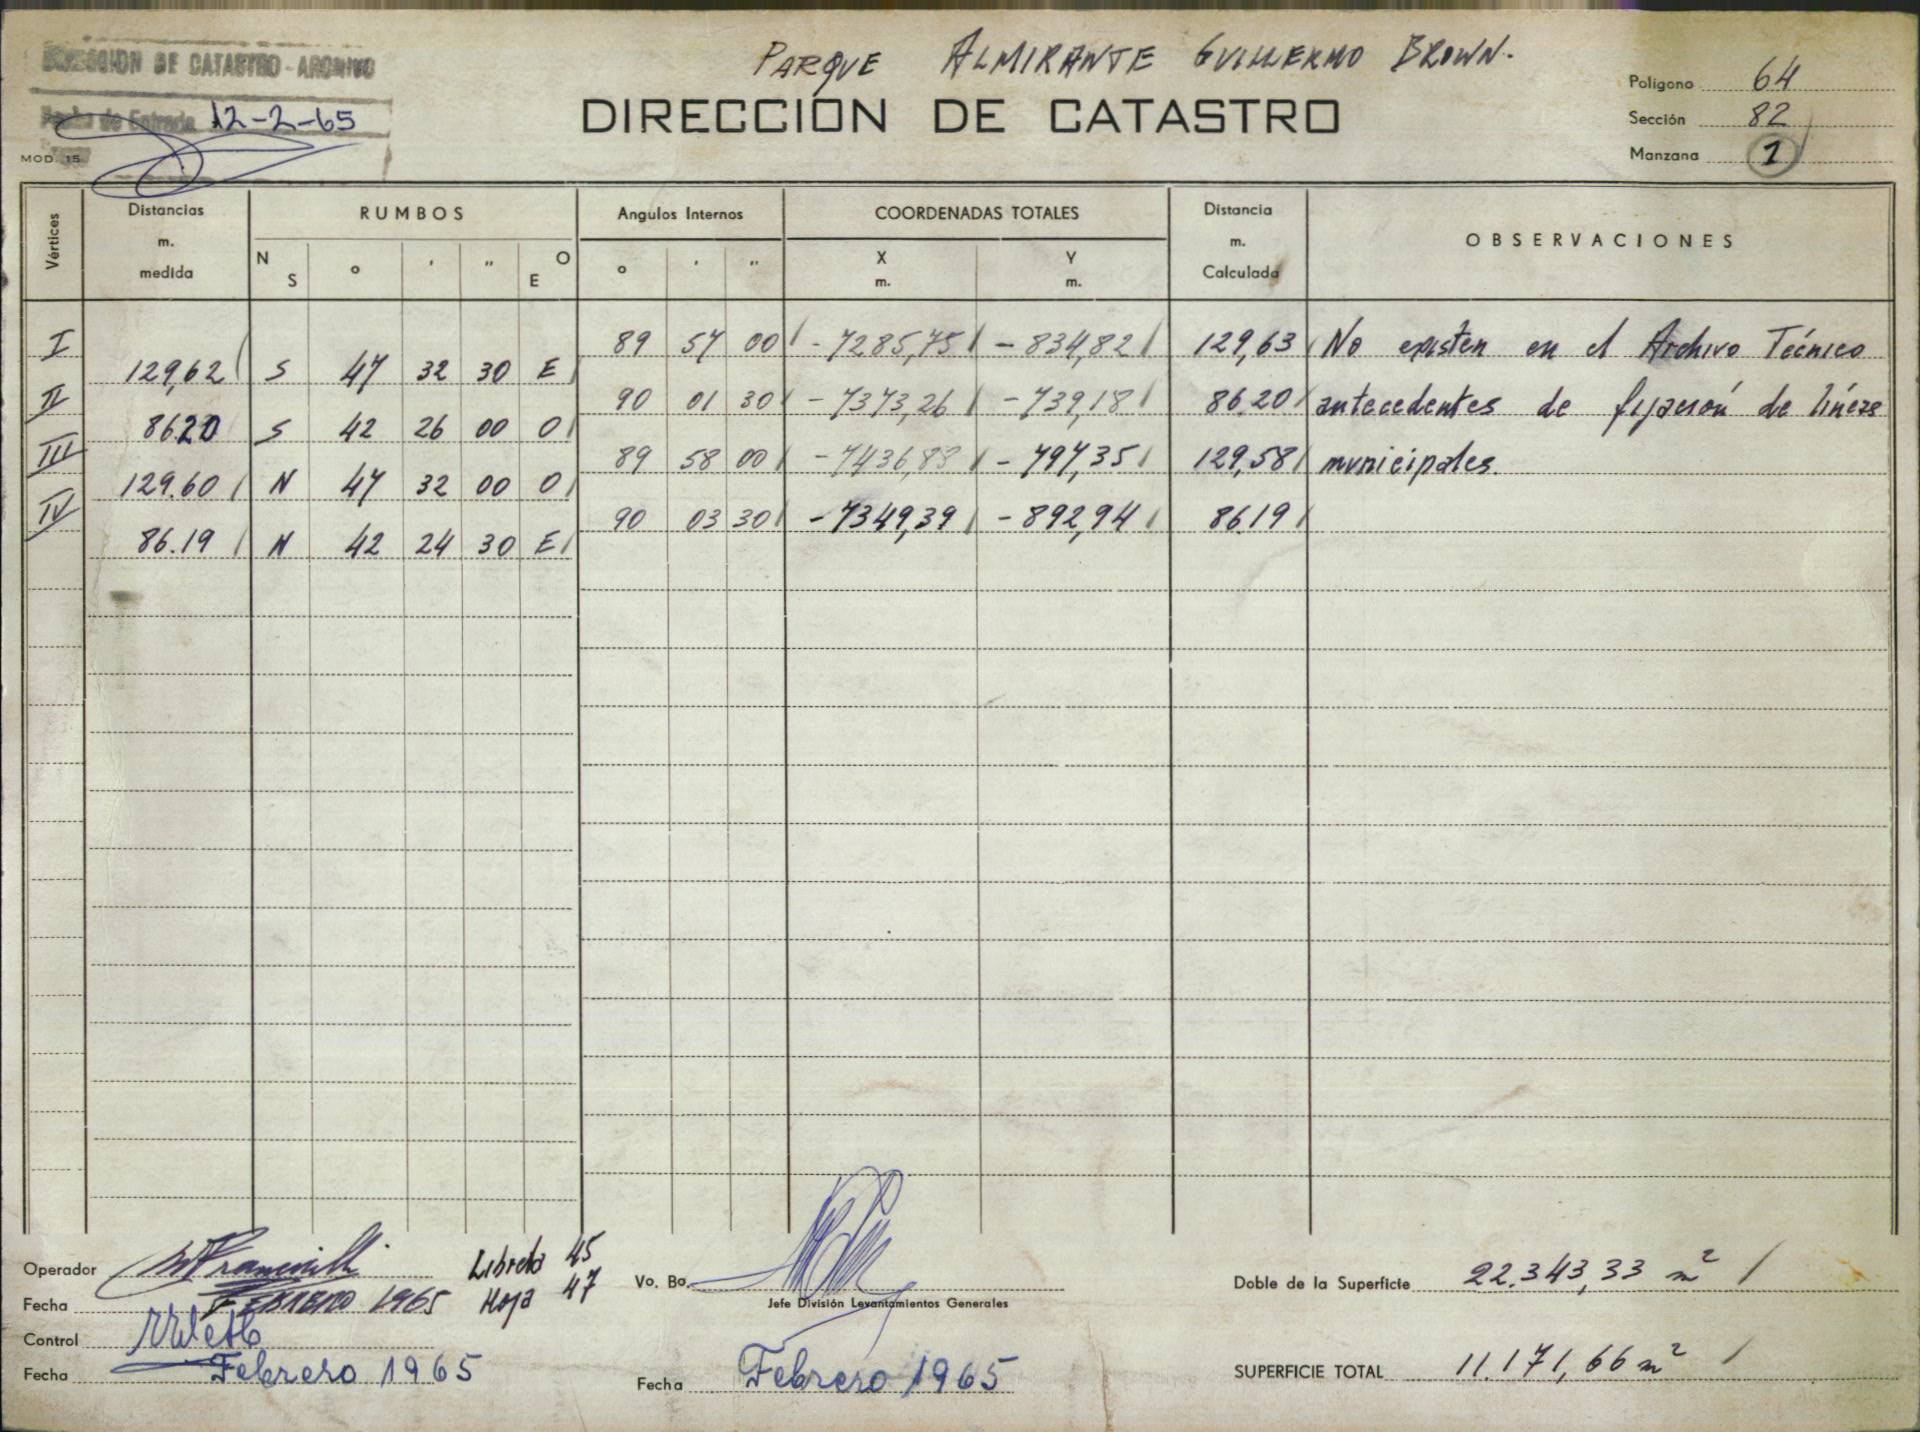 DIRECCION DE CATASTRO - ARCHIVO
Fecha de Entrada 12-2-65
MOD. 15
PARQUE ALMIRANTE GUILLERMO BROWN.
DIRECCION DE CATASTRO
Polígono 64
Sección 82
Manzana 1
Vértices
Distancias m. medida
RUMBOS
N S ° ' " O E
Angulos Internos
° ' "
COORDENADAS TOTALES
X m. Y m.
Distancia m. Calculada
OBSERVACIONES
I 89 57 00 -7285,75 -834,82 129,63 No existen en el Archivo Técnico
129,62 S 47 32 30 E
II 90 01 30 -7373,26 -739,18 86.20 antecedentes de fijación de líneas
86.20 S 42 26 00 O
III 89 58 00 -7436,83 -797,35 129,58 municipales.
129.60 N 47 32 00 O
IV 90 03 30 -7349,39 -892,94 86.19
86.19 N 42 24 30 E
Operador
Libreta 45
Fecha FEBRERO 1965 Hoja 47
Control
Fecha Febrero 1965
Vo. Bo.
Jefe División Levantamientos Generales
Fecha Febrero 1965
Doble de la Superficie 22.343,33 m²
SUPERFICIE TOTAL 11.171,66 m²